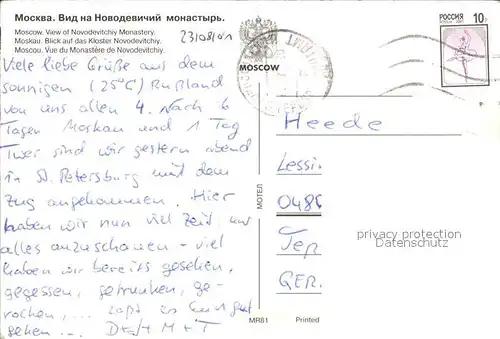 Москва. Вид на Новодевичий монастырь.
Moscow. View of Novodevitchiy Monastery.
Moskau. Blick auf das Kloster Novodevitchiy.
Moscou. Vue du Monastère de Novodevitchiy.
23/08/01
MOSCOW
РОССИЯ 10 р
Viele liebe Grüße aus dem
sonnigen (25°C) Rußland
von uns allen 4. Nach 6
Tagen Moskau und 1 Tag
Twer sind wir gestern abend
in St. Petersburg mit dem
Zug angekommen. Hier
haben wir nun viel Zeit, um
alles anzuschauen - viel
haben wir bereits gesehen,
gegessen, getrunken, ge-
rochen, ... Laßt es Euch gut
gehen... D+H M+T
МОТЕЛ
Heede
Lessi
0486
GER.
privacy protection
Datenschutz
MR81 Printed